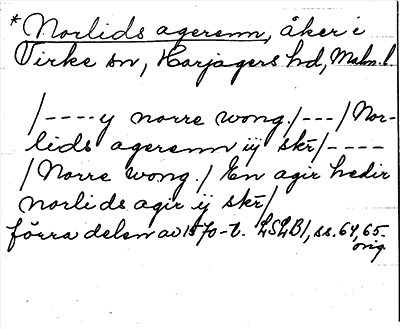 * Norlids agerenn, åker i
Virke sn, Harjagers hd, Malm. l.
/----y norre wong./---/Nor-
lids agerenn iij skr/----
/Norre wong./ En agir hedir
norlids agir ij skr/
förra delen av 1570-t. LSLB1, ss. 64, 65.
orig.